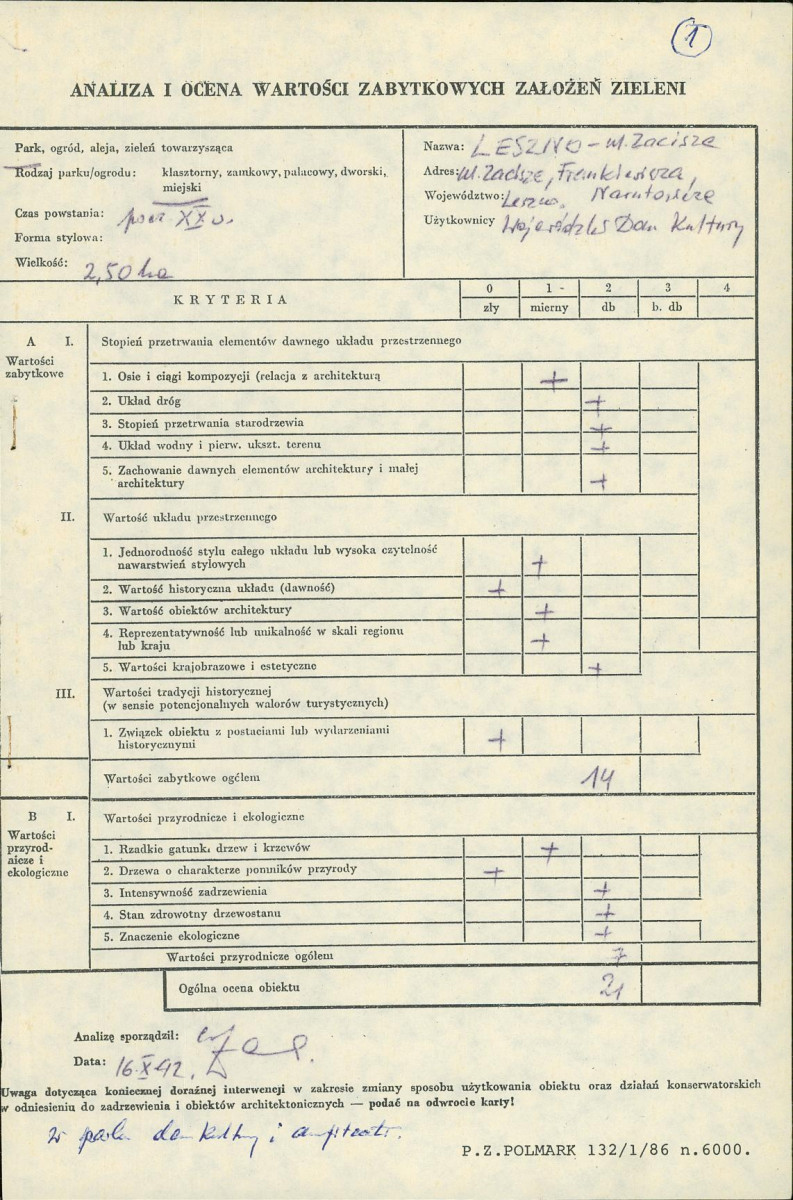 1
ANALIZA I OCENA WARTOŚCI ZABYTKOWYCH ZAŁOŻEŃ ZIELENI
Park, ogród, aleja, zieleń towarzysząca
Rodzaj parku/ogrodu: klasztorny, zamkowy, pałacowy, dworski,
miejski
Czas powstania: pocz XX w.
Forma stylowa:
Wielkość: 2,50 ha
Nazwa: LESZNO - ul. Zacisze
Adres: ul. Zacisze, Frankiewicza,
Województwo: Leszno. Narutowicza
Użytkownicy Wojewódzki Dom Kultury
KRYTERIA
0 1 - 2 3 4
zły mierny db b. db
A I. Stopień przetrwania elementów dawnego układu przestrzennego
Wartości
zabytkowe
1. Osie i ciągi kompozycji (relacja z architekturą +
2. Układ dróg +
3. Stopień przetrwania starodrzewia +
4. Układ wodny i pierw. ukszt. terenu +
5. Zachowanie dawnych elementów architektury i małej
architektury +
II. Wartość układu przestrzennego
1. Jednorodność stylu całego układu lub wysoka czytelność
nawarstwień stylowych +
2. Wartość historyczna układu (dawność) +
3. Wartość obiektów architektury +
4. Reprezentatywność lub unikalność w skali regionu
lub kraju +
5. Wartości krajobrazowe i estetyczne +
III. Wartości tradycji historycznej
(w sensie potencjonalnych walorów turystycznych)
1. Związek obiektu z postaciami lub wydarzeniami
historycznymi +
Wartości zabytkowe ogółem 14
B I. Wartości przyrodnicze i ekologiczne
Wartości
przyrod-
nicze i
ekologiczne
1. Rzadkie gatunki drzew i krzewów +
2. Drzewa o charakterze pomników przyrody +
3. Intensywność zadrzewienia +
4. Stan zdrowotny drzewostanu +
5. Znaczenie ekologiczne +
Wartości przyrodnicze ogółem 7
Ogólna ocena obiektu 21
Analizę sporządził:
Data: 16.X.92.
Uwaga dotycząca koniecznej doraźnej interwencji w zakresie zmiany sposobu użytkowania obiektu oraz działań konserwatorskich
w odniesieniu do zadrzewienia i obiektów architektonicznych — podać na odwrocie karty!
W parku dom kultury i amfiteatr.
P.Z.POLMARK 132/1/86 n.6000.